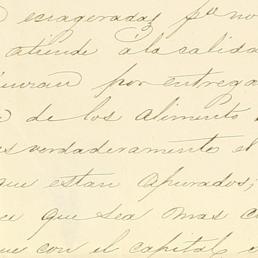 exageradas pa no
atiende á la calida
por entrega
de los alimento
verdaderamento el
que estan apurados,
ce que sea mas c
ue con el capital